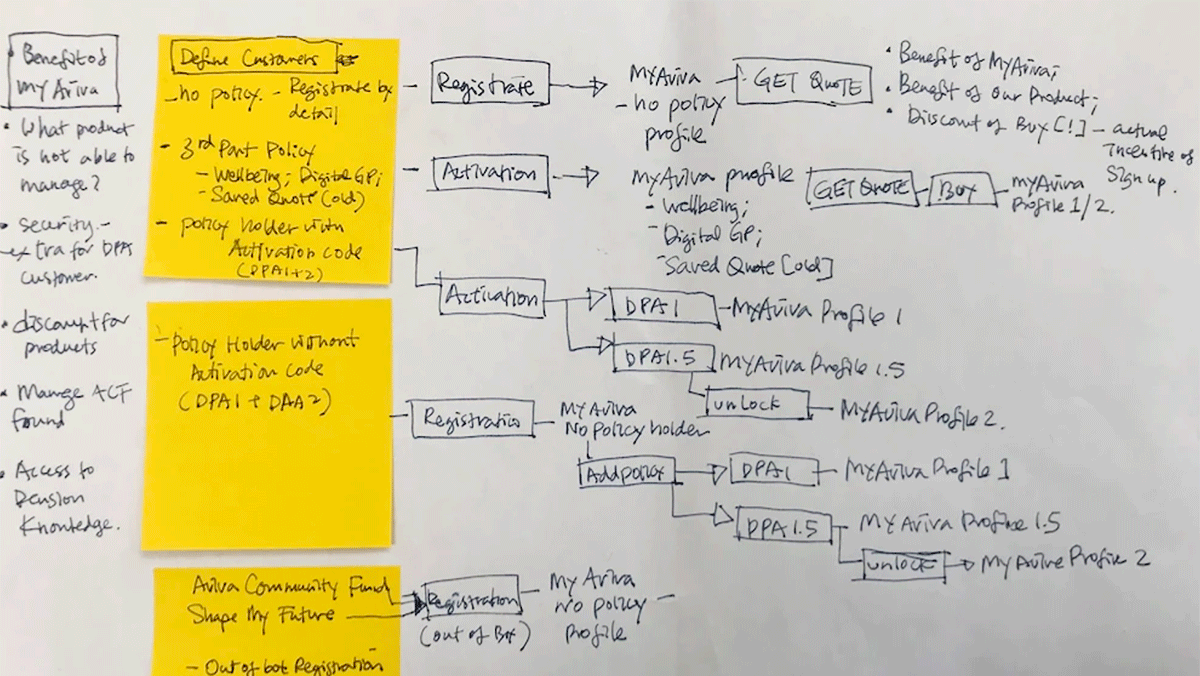 • Benefit of
my Aviva
• What product
is not able to
manage?
• security -
extra for DPA
customer.
• discount for
products
• Manage ACF
found
• Access to
Pension
Knowledge.
Define Customers
- no policy. - Registrate by
detail
- 3rd Part Policy
- Wellbeing; Digital GP;
- Saved Quote (old)
- policy holder with
Activation code
(DPA1+2)
- Policy Holder without
Activation Code
(DPA1 + DAA2)
Aviva Community Fund
Shape My Future
- Out of bot Registration
Registrate
MyAviva
- no policy
profile
GET QUOTE
• Benefit of MyAviva;
• Benefit of our Product;
• Discount of Buy [!] - actual
incentive of
Sign up.
Activation
MyAviva profile
- Wellbeing;
- Digital GP;
- Saved Quote [old]
GET QUOTE
Buy
myAviva
Profile 1/2.
Activation
DPA1
MyAviva Profile 1
DPA1.5
MyAviva Profile 1.5
unlock
MyAviva Profile 2.
Registration
My Aviva
No policy holder
Add policy
DPA1
MyAviva Profile 1
DPA1.5
MyAviva Profile 1.5
unlock
MyAviva Profile 2
Registration
(out of Box)
My Aviva
no policy -
profile